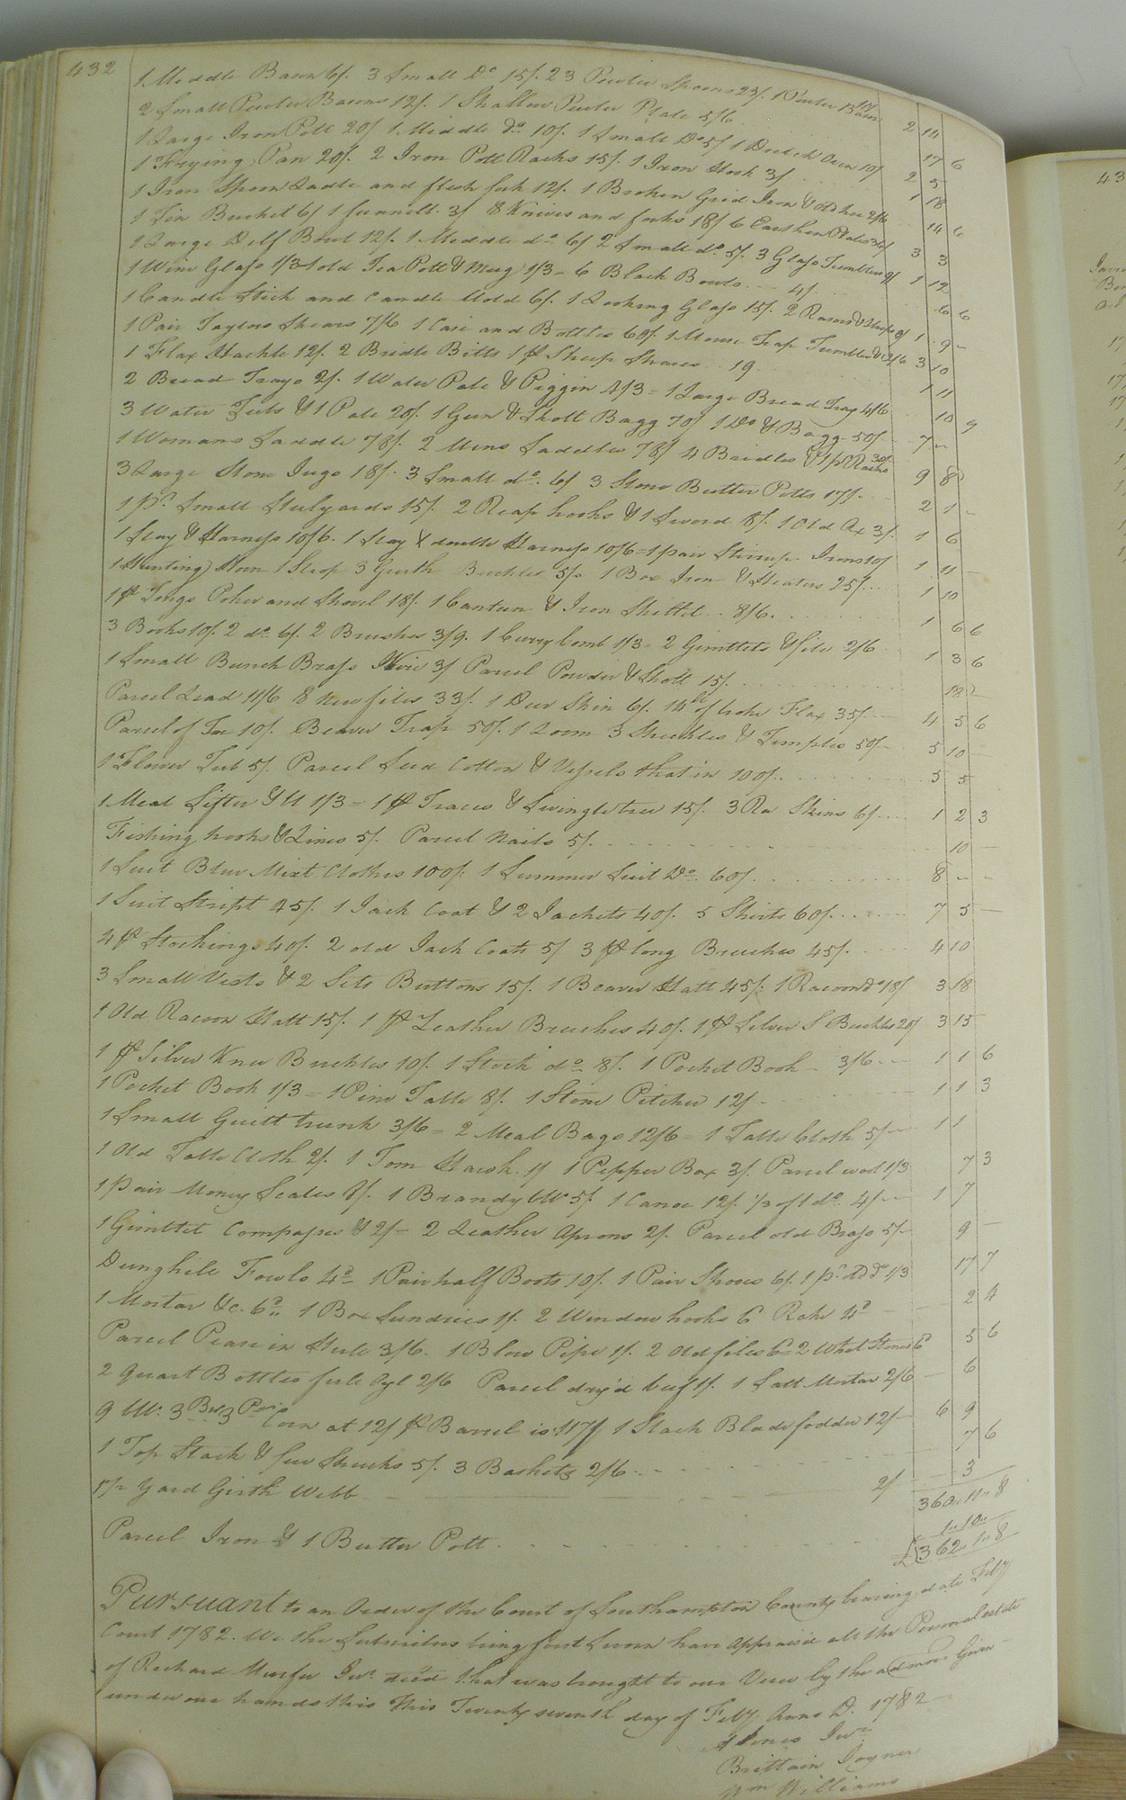 432
1 Meddle Bason 6/. 3 Small Do 15/. 23 Pewter Spoons 23/. 1 Pewter Bason 2 14
2 Small Pewter Basons 12/. 1 Shallow Pewter Plate 5/6 17 6
1 Large Iron Pott 20/ 1 Middle do 10/. 1 Small Do 5/ 1 Dutch Oven 10/ 2 5
1 Frying Pan 20/. 2 Iron Pott Racks 15/. 1 Iron Hook 3/ 1 18
1 Iron Spoon Ladle and flesh fork 12/. 1 Broken Grid Iron & old hoe 2/6 14 6
1 Tin Bucket 6/ 1 funnill 3/ 8 Knives and forks 18/ 6 Earthen Plates 36/ 3 3
1 Large Delf Bowl 12/. 1 Meddle do 6/ 2 Small do 5/. 3 Glass Tumblers 9/ 1 12
1 Wine Glass 1/3 1 old Tea Pott & Mug 1/3 = 6 Black Bowls 4/ 6 6
1 Candle Stick and Candle Mold 6/. 1 Looking Glass 15/. 2 Rasors & Strop 8/ 1 9 -
1 Pair Taylors Shears 7/6 1 Case and Bottles 60/. 1 Mouse Trap Tumbler & 2/6 3 10
1 Flax Hackle 12/. 2 Bridle Bitts 1 pr Sheep Shears 19 1 11
2 Bread Trays 2/. 1 Water Pale & Piggin 4/3 = 1 Large Bread Tray 4/6 10 9
3 Water Tubs & 1 Pale 20/. 1 Gun & Shott Bagg 70/ 1 Do & Bagg 50/ 7 -
1 Womans Saddle 78/. 2 Mens Saddles 78/ 4 Bridles & 1 pr 30/ 9 8
3 Large Stone Jugs 18/. 3 Small do 6/ 3 Stone Butter Potts 17/. 2 1 -
1 pr Small Steelyards 15/. 2 Reap hooks & 1 Sword 8/. 1 Old Ax 3/. 1 6
1 Slay & Harness 10/6. 1 Slay & double Harness 10/6 = 1 pair Stirrup Irons 10/ 1 11 -
1 Hunting Horn 1 Strop 3 Girth Buckles 5/. 1 Box Iron & Heaters 25/. 1 10
1 pr Tongs Poker and Shovel 18/. 1 Canteen & Iron Skittel 8/6. 1 6 6
3 Books 10/. 2 do 6/. 2 Brushes 3/9. 1 Curry Comb 1/3 = 2 Gimblets & file 2/6 1 3 6
1 Small Bunch Brass Wire 3/ Parcel Powder & Shott 15/. 18 -
Parcel Lead 11/6 8 new files 33/. 1 Deer Skin 6/. 14 lb of broke Flax 35/ 4 5 6
Parcel of Tow 10/. Beaver Trap 50/. 1 Loom 3 Shuttles & Temples 50/- 5 10 -
1 Flower Tub 5/. Parcel Seed Cotton & Vessels that in 100/. 5 5
1 Meal Sifter & 1/3 = 1 pr Traces & Swingletree 15/. 3 Ra Skins 6/ 1 2 3
Fishing hooks & Lines 5/. Parcel Nails 5/. 10 -
1 Suit Blue Mixt Clothes 100/. 1 Summer Suit Do. 60/. 8 - -
1 Suit Stript 45/. 1 Jack Coat & 2 Jackets 40/. 5 Shirts 60/. 7 5 -
4 pr Stockings 40/. 2 old Jack Coats 5/ 3 pr long Breeches 45/. 4 10
3 Small Vests & 2 Sets Buttons 15/. 1 Beaver Hatt 45/. 1 Racoon Do 18/ 3 18
1 Old Racoon Hatt 15/. 1 pr Leather Breeches 40/. 1 pr Silver S Buckles 20/ 3 15
1 pr Silver Knee Buckles 10/. 1 Stock do 8/. 1 Pocket Book 3/6 1 1 6
1 Pocket Book 1/3 = 1 Pine Table 8/. 1 Stone Pitcher 12/ - 1 1 3
1 Small Guilt trunk 3/6 = 2 Meal Bags 12/6 = 1 Table Cloth 5/- 1 1
1 Old Table Cloth 2/. 1 Tom Hawk 1/ 1 Pepper Box 3/. Parcel wool 1/3 7 3
1 pair Money Scales 8/. 1 Brandy 5/. 1 Canoe 12/. 1/3 of 1 do. 4/- 1 7
1 Gimblet Compasses & 2/- 2 Leather Aprons 2/. Parcel old Brass 5/- 9 -
Dunghile Fowls 4d 1 Pair half Boots 10/. 1 Pair Shoes 6/. 1 pr do 1/3 17 7
1 Mortar &c. 6d 1 Box Sundries 1/. 2 Window hooks 6 Rake 4d 2 4
Parcel Pease in Hull 3/6. 1 Blow Pipe 1/. 2 Old files 6 = 2 Whet Stones 6 5 6
2 Quart Bottles full Oyl 2/6 Parcel dry'd beef 1/. 1 Salt Mortar 2/6 - 6
9 3 3 Corn at 12/ pr Barrel is 117/ 1 Stack Blade fodder 12/- 6 9
1 Top Stack & few Shucks 5/. 3 Baskets 2/6 7 6
Yard Girth Webb 2/ 3
360 .. 11 .. 8
Parcel Iron & 1 Butter Pott 1 .. 10 ..
£ 362 .. 1 .. 8
Pursuant to an Order of the Court of Southampton County bearing date Feby
Court 1782. We the Subscribers being first Sworn have Appraised all the Personal estate
of Richard Murfee Junr. decd that was brought to our View by the admor. Given
under our hands this This Twenty seventh day of Feby. Anno D. 1782
A Jones Junr
Brittain Joyner
Wm Williams